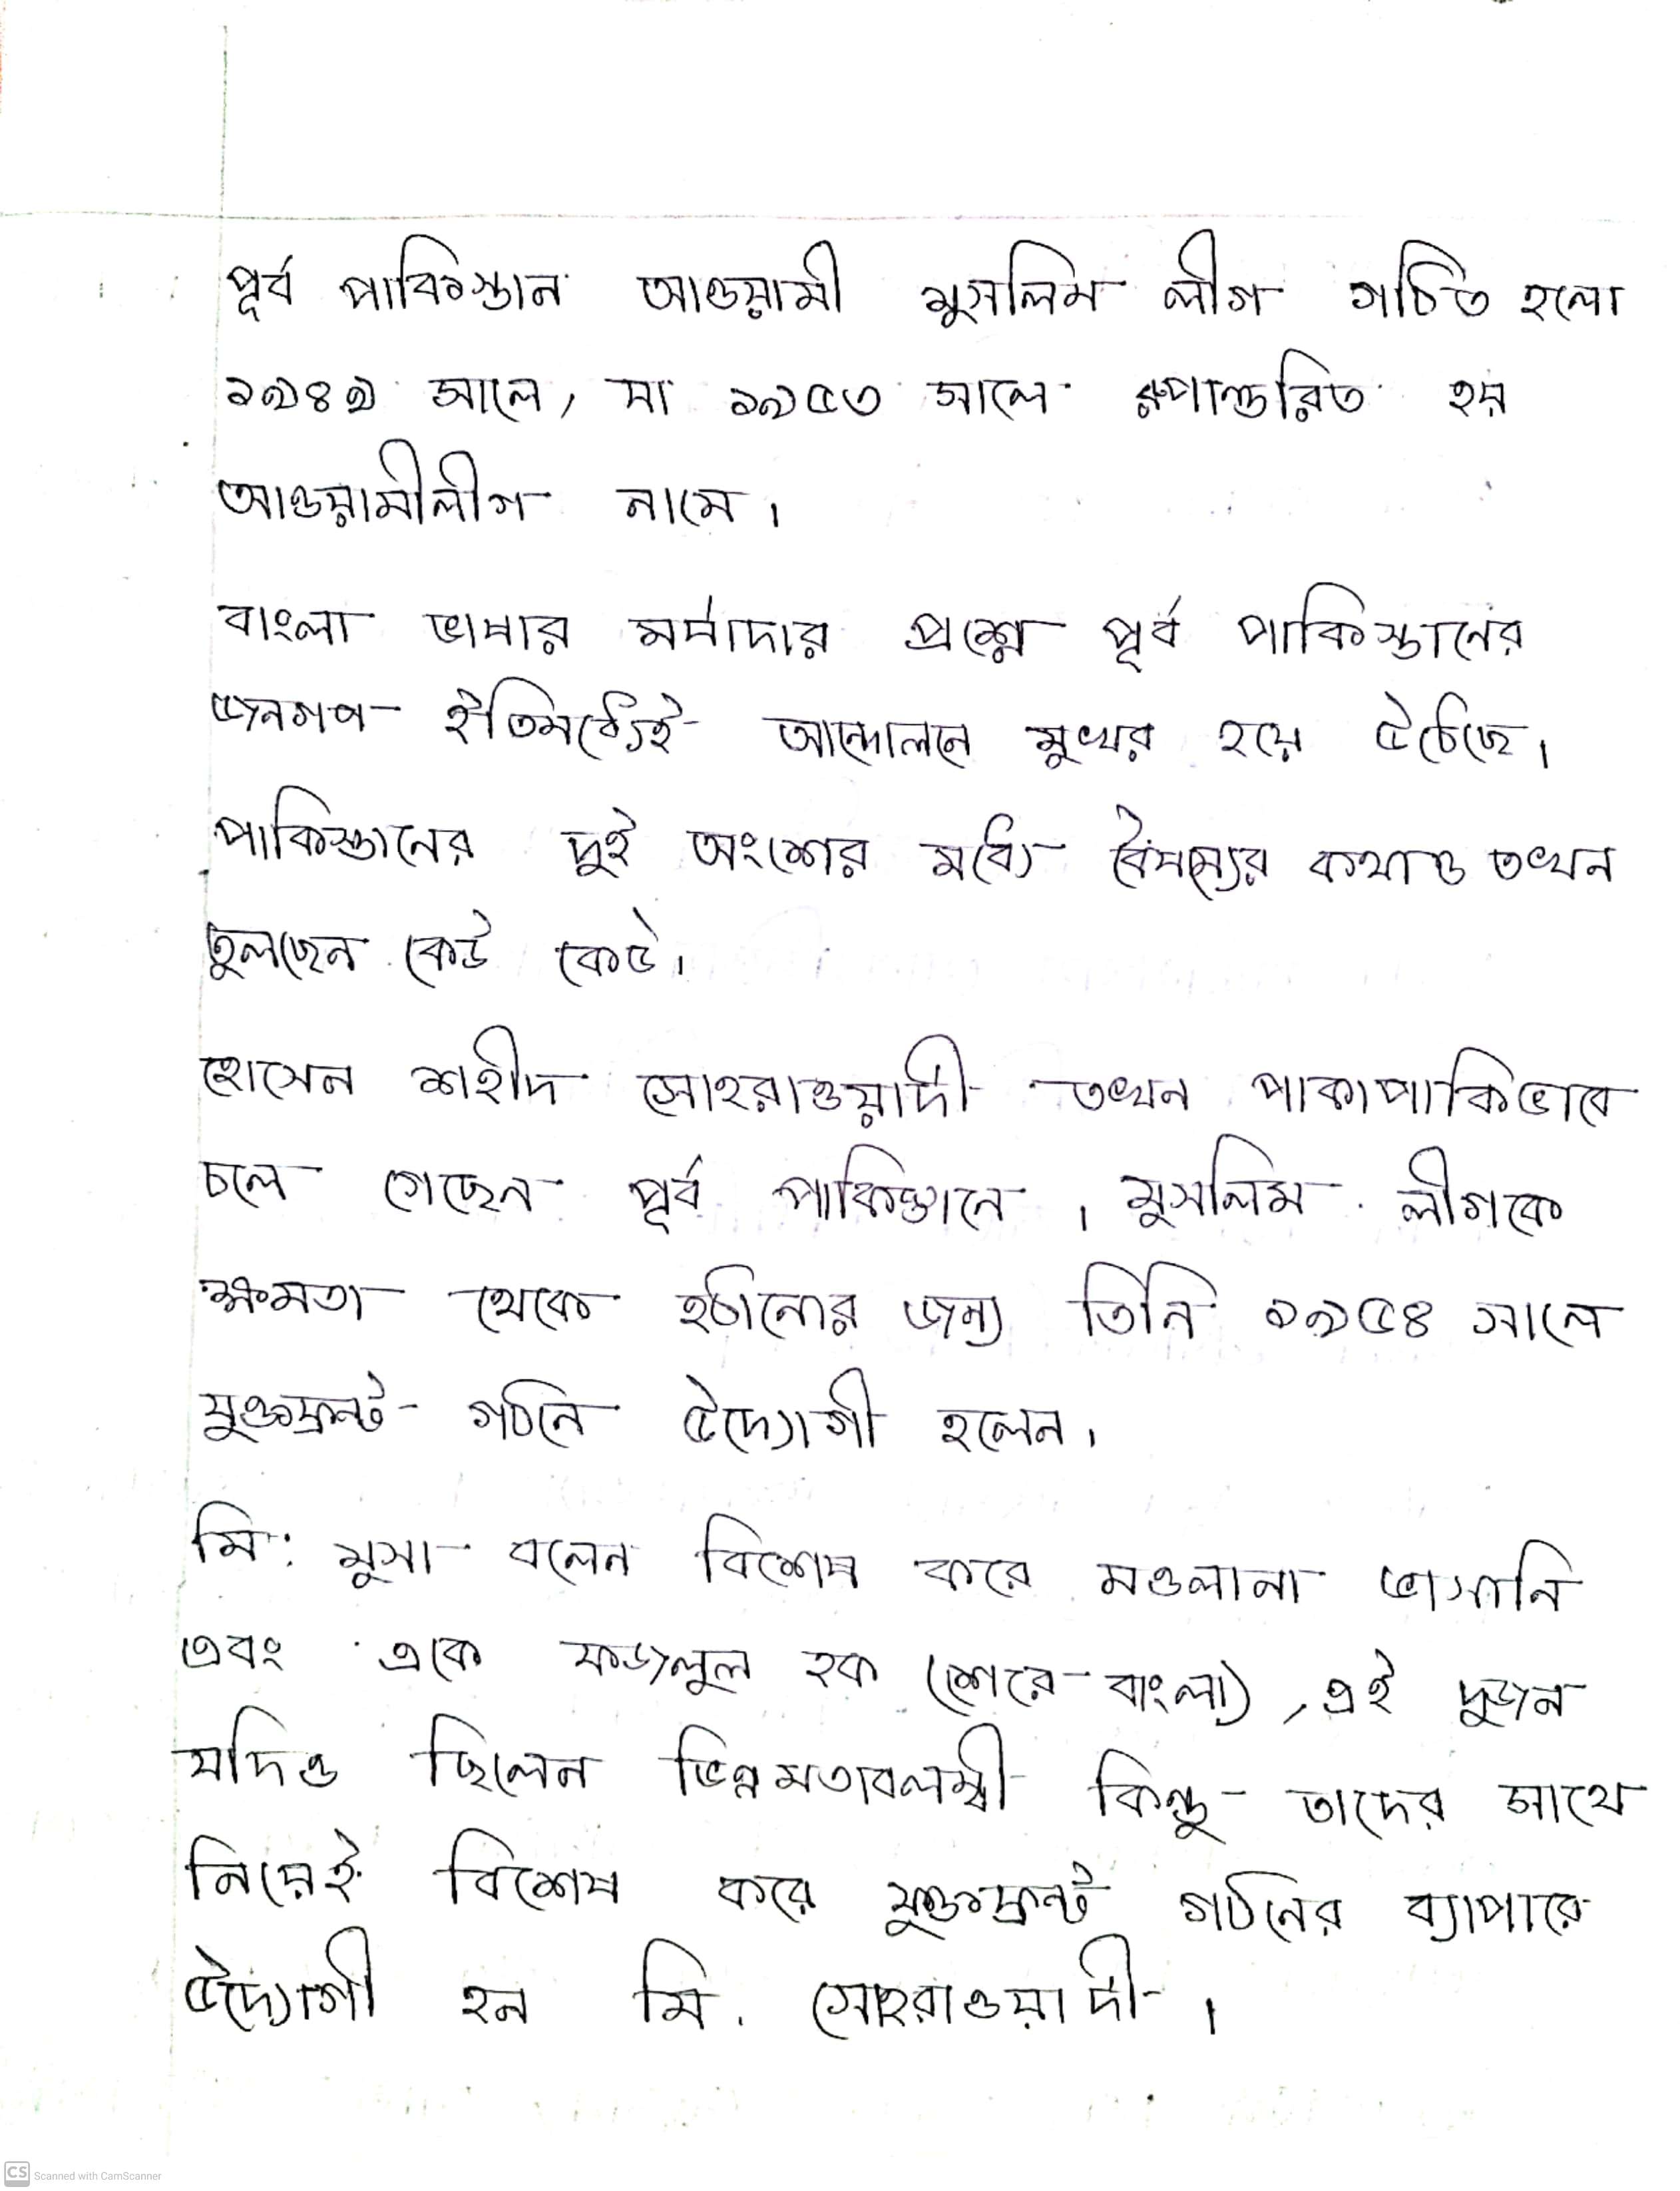 পূর্ব পাকিস্তান আওয়ামী মুসলিম লীগ গঠিত হলো
১৯৪৯ সালে, যা ১৯৫৩ সালে রুপান্তরিত হয়
আওয়ামীলীগ নামে।
বাংলা ভাষার মর্যাদার প্রশ্নে পূর্ব পাকিস্তানের
জনগণ ইতিমধ্যেই আন্দোলনে মুখর হয়ে উঠেছে।
পাকিস্তানের দুই অংশের মধ্যে বৈষম্যের কথাও তখন
তুলছেন কেউ কেউ।
হোসেন শহীদ সোহরাওয়ার্দী তখন পাকাপাকিভাবে
চলে গেছেন পূর্ব পাকিস্তানে। মুসলিম লীগকে
ক্ষমতা থেকে হঠানোর জন্য তিনি ১৯৫৪ সালে
যুক্তফ্রন্ট গঠনে উদ্যোগী হলেন।
মি: মুসা বলেন বিশেষ করে মওলানা ভাসানি
এবং একে ফজলুল হক (শেরে-বাংলা), এই দুজন
যদিও ছিলেন ভিন্নমতাবলম্বী কিন্তু তাদের সাথে
নিয়েই বিশেষ করে যুক্তফ্রন্ট গঠনের ব্যাপারে
উদ্যোগী হন মি. সোহরাওয়ার্দী।
CS Scanned with CamScanner